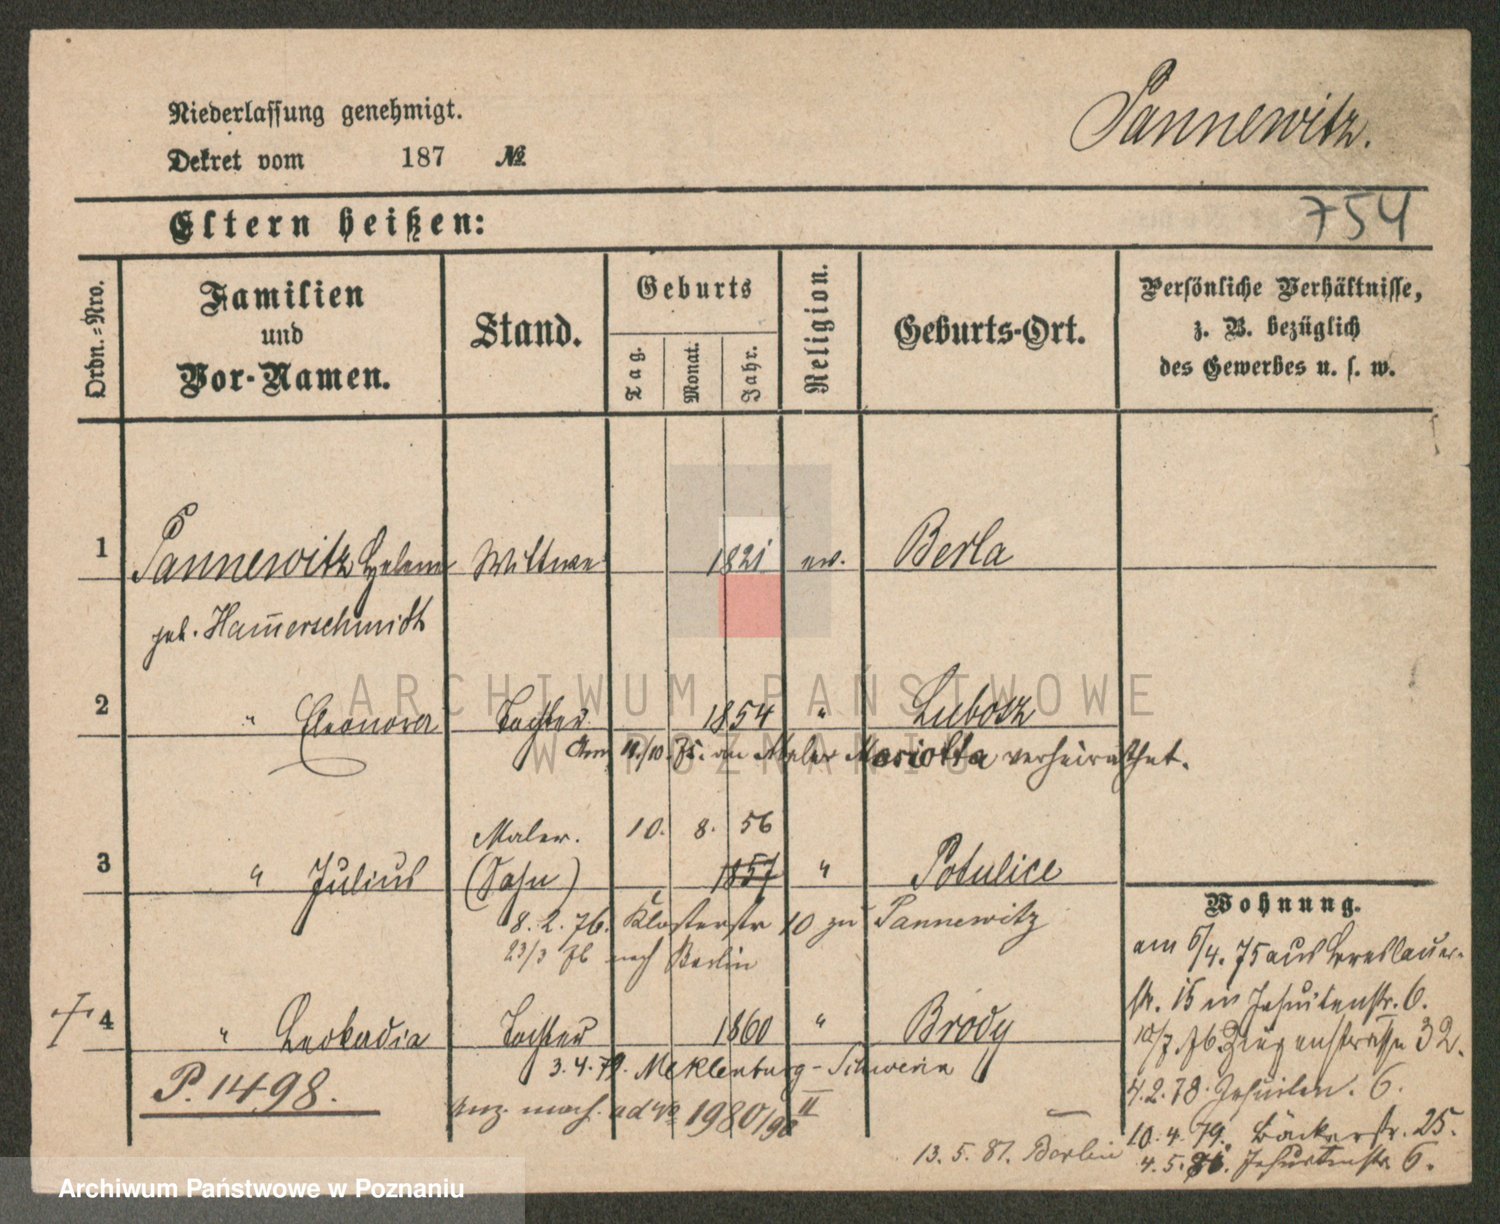 Niederlassung genehmigt.
Pannewitz.
Dekret vom 187 №
Eltern heißen:
754
Ordn.-Nro.
Familien und Vor-Namen.
Stand.
Geburts
Tag.
Monat.
Jahr.
Religion.
Geburts-Ort.
Persönliche Verhältnisse,
z. B. bezüglich
des Gewerbes u. s. w.
1 Pannewitz Helene Wittwe 1821 ev. Berla
geb. Ham̄erschmidt
2 " Eleonora Tochter 1854 " Lubosz
Am 11./10. 75. an Maler Mariotta verheirathet.
Maler. 10. 8. 56
3 " Julius (Sohn) 1857 " Potulice
8. 2. 76. Klosterstr 10 zu Pannewitz
23/3 76 nach Berlin
4 " Leokadia Tochter 1860 " Brody
3. 4. 79. Meklenburg-Schwerin
P. 1498.
Anz. mach. ad № 1980/98 II
13. 5. 81. Berlin
Wohnung.
am 5/4. 75 aus Breslauer-
str. 15 in Jesuitenstr. 6.
10/7. 76. Ziegenstrasse 32.
4. 2. 78. Jesuiten. 6.
10. 4. 79. Bäckerstr. 25.
4. 5. 81. Jesuitenstr. 6.
ARCHIWUM PAŃSTWOWE
W POZNANIU
Archiwum Państwowe w Poznaniu